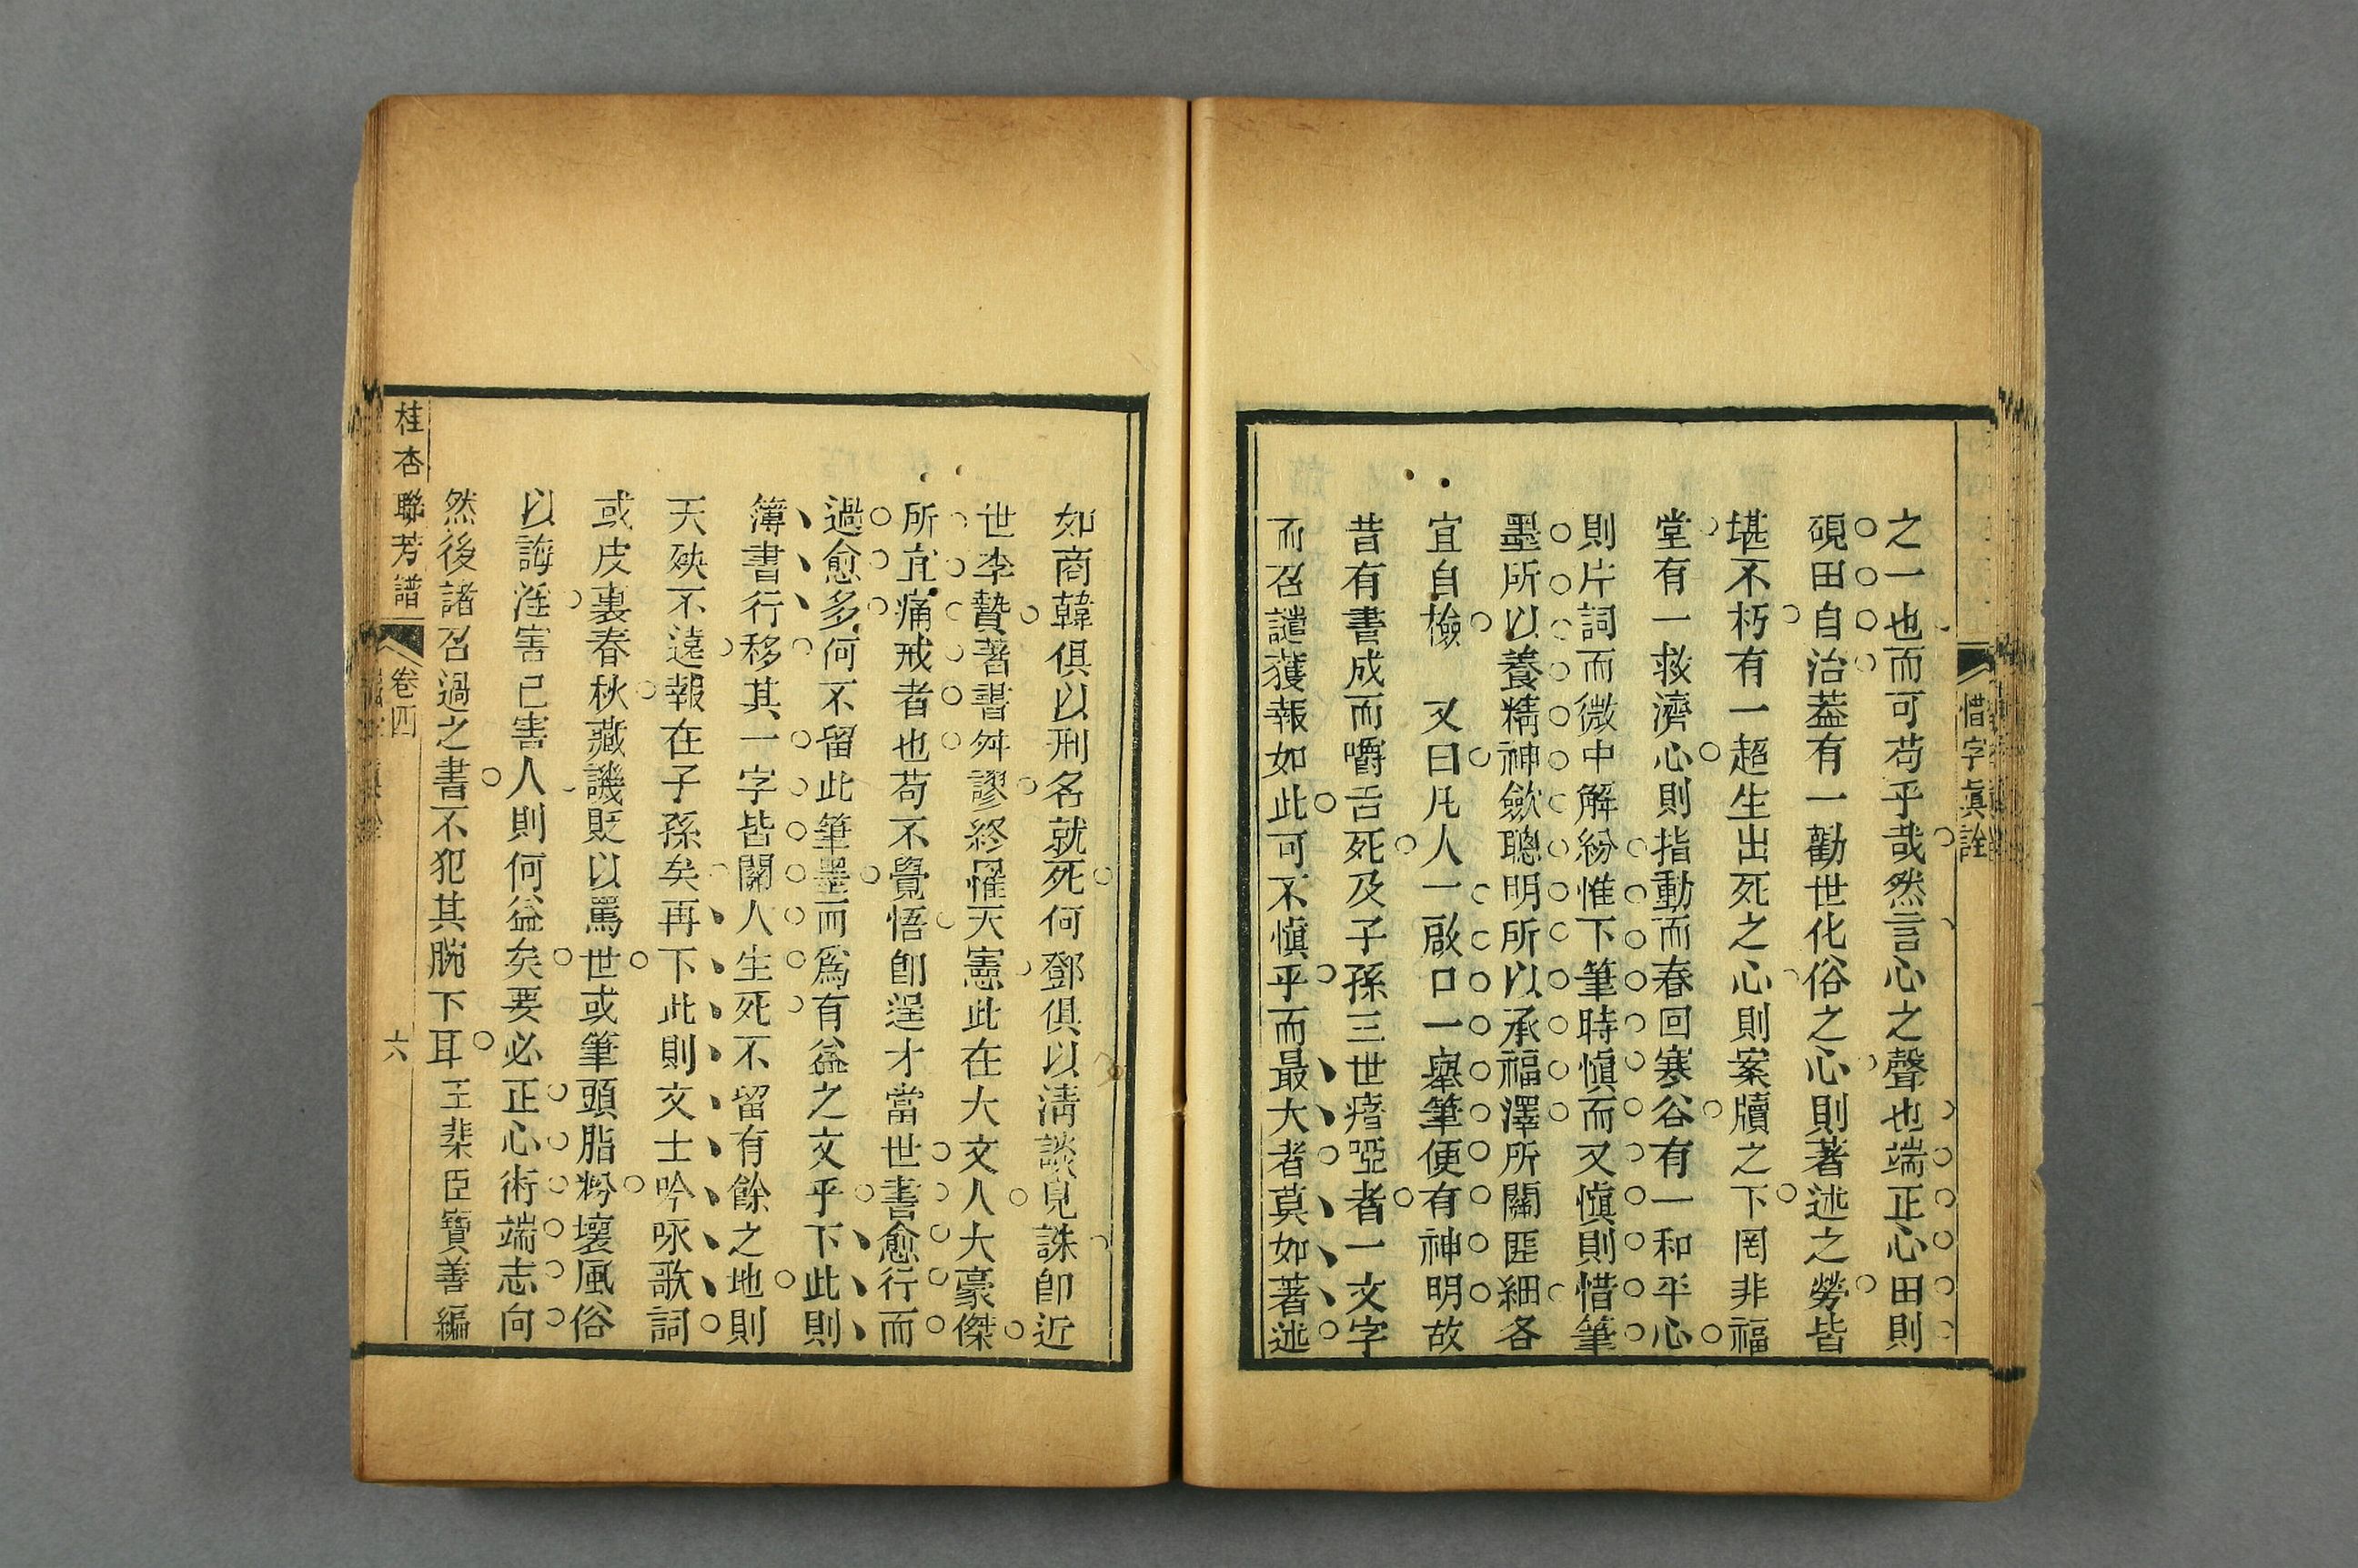 惜字真詮
之一也而可苟乎哉然言心之聲也端正心田則
硯田自治葢有一勸世化俗之心則著述之勞皆
堪不朽有一超生出死之心則案牘之下罔非福
堂有一救濟心則指動而春回寒谷有一和平心
則片詞而微中解紛惟下筆時愼而又愼則惜筆
墨所以養精神歛聰明所以承福澤所關匪細各
宜自檢　又曰凡人一啟口一舉筆便有神明故
昔有書成而嚼舌死及子孫三世瘖啞者一文字
而召譴獲報如此可不愼乎而最大者莫如著述
如商韓俱以刑名就死何鄧俱以淸談見誅卽近
世李贄著書舛謬終罹天憲此在大文人大豪傑
所宜痛戒者也苟不覺悟卽逞才當世書愈行而
過愈多何不留此筆墨而爲有益之文乎下此則
簿書行移其一字皆關人生死不留有餘之地則
天殃不遠報在子孫矣再下此則文士吟咏歌詞
或皮裏春秋藏譏貶以罵世或筆頭脂粉壞風俗
以誨淫害已害人則何益矣要必正心術端志向
然後諸召過之書不犯其腕下耳王棻臣寶善編
桂杏聯芳譜
卷四
六